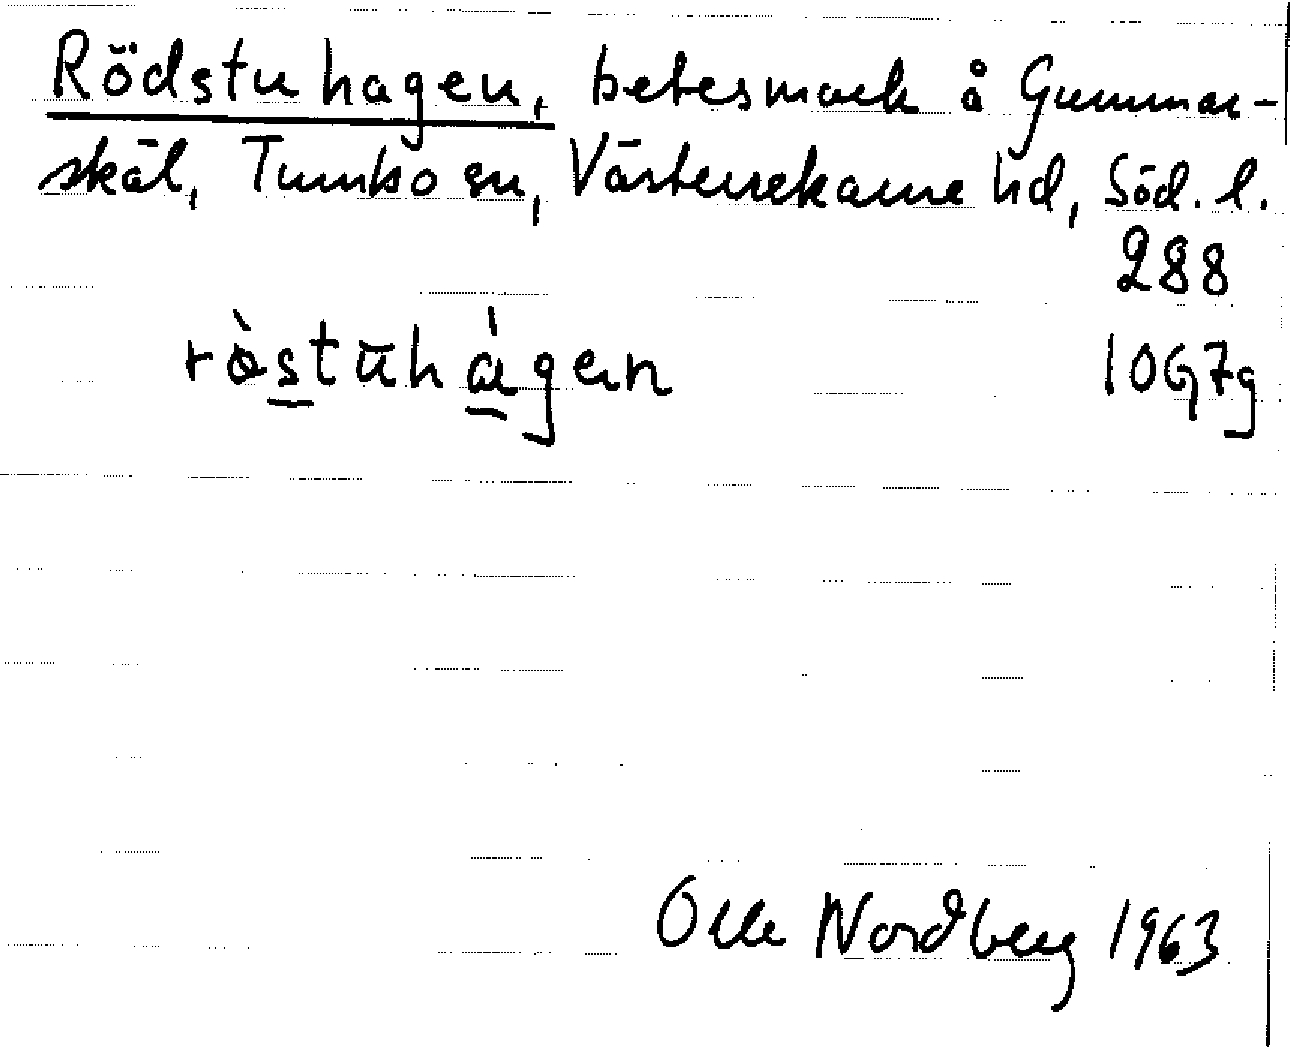 Rödstuhagen, betesmark å Gummar-
skäl, Tumbo sn, Västerrekarne hd, Söd. l.
288
ròstūhágen
10G7g
Olle Nordberg 1963